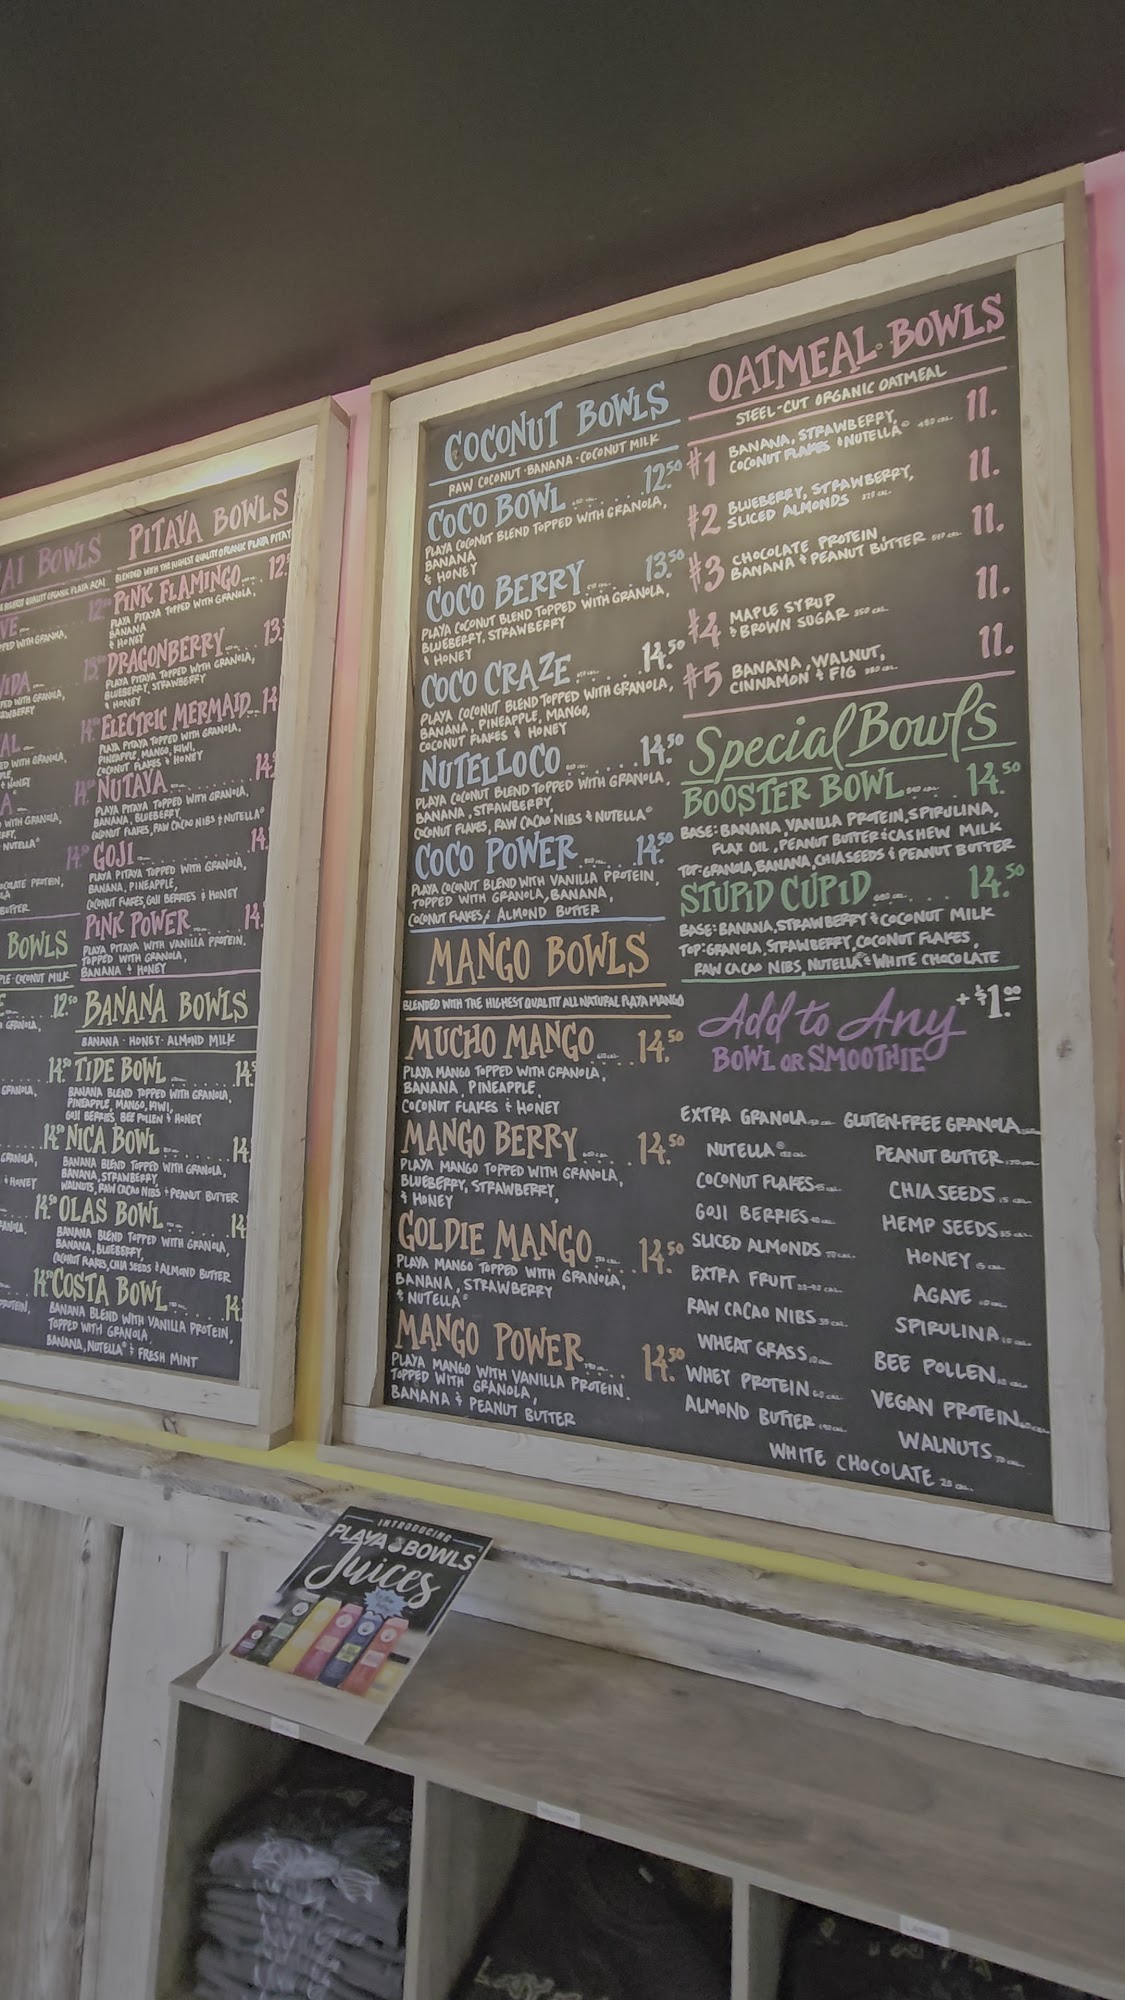 AI BOWLS
12.50
14.50
BOWLS
PLE COCONUT MILK
12.50
GRANOLA,
14.50
GRANOLA,
14.50
GRANOLA,
& HONEY
14.50
14.50
PITAYA BOWLS
BLENDED WITH THE HIGHEST QUALITY ORGANIC PLAYA PITAY
PINK FLAMINGO 12.
PLAYA PITAYA TOPPED WITH GRANOLA,
BANANA
& HONEY
DRAGONBERRY 13.
PLAYA PITAYA TOPPED WITH GRANOLA,
BLUEBERRY, STRAWBERRY
& HONEY
ELECTRIC MERMAID 14
PLAYA PITAYA TOPPED WITH GRANOLA,
PINEAPPLE, MANGO, KIWI,
COCONUT FLAKES & HONEY
NUTAYA 14.
PLAYA PITAYA TOPPED WITH GRANOLA,
BANANA, BLUEBERRY,
COCONUT FLAKES, RAW CACAO NIBS & NUTELLA®
GOJI 14.
PLAYA PITAYA TOPPED WITH GRANOLA,
BANANA, PINEAPPLE,
COCONUT FLAKES, GOJI BERRIES & HONEY
PINK POWER 14.
PLAYA PITAYA WITH VANILLA PROTEIN,
TOPPED WITH GRANOLA,
BANANA & HONEY
BANANA BOWLS
BANANA · HONEY · ALMOND MILK
TIDE BOWL 14.
BANANA BLEND TOPPED WITH GRANOLA,
PINEAPPLE, MANGO, KIWI,
GOJI BERRIES, BEE POLLEN & HONEY
NICA BOWL 14
BANANA BLEND TOPPED WITH GRANOLA,
BANANA, STRAWBERRY
WALNUTS, RAW CACAO NIBS & PEANUT BUTTER
OLAS BOWL 14
BANANA BLEND TOPPED WITH GRANOLA,
BANANA, BLUEBERRY,
COCONUT FLAKES, CHIA SEEDS & ALMOND BUTTER
COSTA BOWL 14.
BANANA BLEND WITH VANILLA PROTEIN,
TOPPED WITH GRANOLA,
BANANA, NUTELLA® & FRESH MINT
COCONUT BOWLS
RAW COCONUT · BANANA · COCONUT MILK
COCO BOWL 12.50
PLAYA COCONUT BLEND TOPPED WITH GRANOLA,
BANANA
& HONEY
COCO BERRY 13.50
PLAYA COCONUT BLEND TOPPED WITH GRANOLA,
BLUEBERRY, STRAWBERRY
& HONEY
COCO CRAZE 14.50
PLAYA COCONUT BLEND TOPPED WITH GRANOLA,
BANANA, PINEAPPLE, MANGO,
COCONUT FLAKES & HONEY
NUTELLOCO 14.50
PLAYA COCONUT BLEND TOPPED WITH GRANOLA,
BANANA, STRAWBERRY
COCONUT FLAKES, RAW CACAO NIBS & NUTELLA®
COCO POWER 14.50
PLAYA COCONUT BLEND WITH VANILLA PROTEIN,
TOPPED WITH GRANOLA, BANANA,
COCONUT FLAKES, & ALMOND BUTTER
MANGO BOWLS
BLENDED WITH THE HIGHEST QUALITY ALL NATURAL PLAYA MANGO
MUCHO MANGO 14.50
PLAYA MANGO TOPPED WITH GRANOLA,
BANANA, PINEAPPLE,
COCONUT FLAKES & HONEY
MANGO BERRY 14.50
PLAYA MANGO TOPPED WITH GRANOLA,
BLUEBERRY, STRAWBERRY,
& HONEY
GOLDIE MANGO 14.50
PLAYA MANGO TOPPED WITH GRANOLA,
BANANA, STRAWBERRY
& NUTELLA®
MANGO POWER 14.50
PLAYA MANGO WITH VANILLA PROTEIN,
TOPPED WITH GRANOLA,
BANANA & PEANUT BUTTER
OATMEAL BOWLS
STEEL-CUT ORGANIC OATMEAL
#1 BANANA, STRAWBERRY, 11.
COCONUT FLAKES & NUTELLA®
#2 BLUEBERRY, STRAWBERRY, 11.
SLICED ALMONDS
#3 CHOCOLATE PROTEIN, 11.
BANANA & PEANUT BUTTER
#4 MAPLE SYRUP 11.
& BROWN SUGAR
#5 BANANA, WALNUT, 11.
CINNAMON & FIG
Special Bowls
BOOSTER BOWL 14.50
BASE: BANANA, VANILLA PROTEIN, SPIRULINA,
FLAX OIL, PEANUT BUTTER & CASHEW MILK
TOP: GRANOLA, BANANA, CHIA SEEDS & PEANUT BUTTER
STUPID CUPID 14.50
BASE: BANANA, STRAWBERRY & COCONUT MILK
TOP: GRANOLA, STRAWBERRY, COCONUT FLAKES,
RAW CACAO NIBS, NUTELLA® & WHITE CHOCOLATE
Add to Any + $1.00
BOWL OR SMOOTHIE
EXTRA GRANOLA GLUTEN-FREE GRANOLA
NUTELLA® PEANUT BUTTER
COCONUT FLAKES CHIA SEEDS
GOJI BERRIES HEMP SEEDS
SLICED ALMONDS HONEY
EXTRA FRUIT AGAVE
RAW CACAO NIBS SPIRULINA
WHEAT GRASS BEE POLLEN
WHEY PROTEIN VEGAN PROTEIN
ALMOND BUTTER WALNUTS
WHITE CHOCOLATE
INTRODUCING
PLAYA BOWLS
Juices